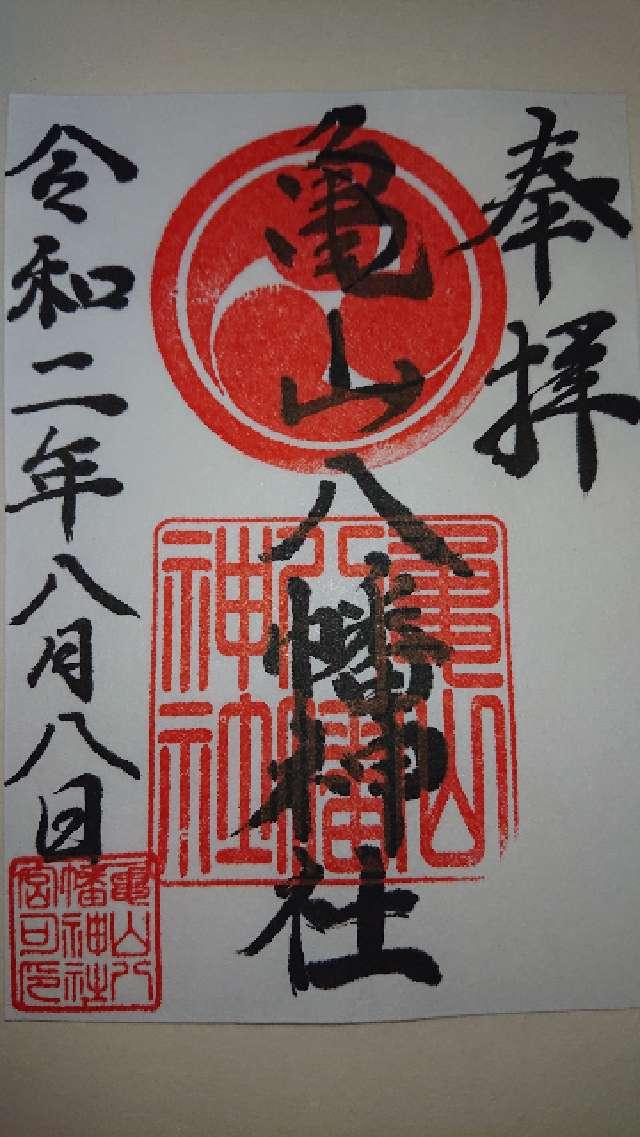 奉拝
亀山八幡神社
亀山
八幡
神社
令和二年八月八日
亀山八
幡神社
宮司印